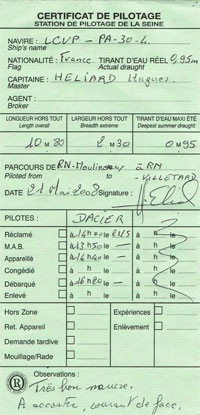 CERTIFICAT DE PILOTAGE
STATION DE PILOTAGE DE LA SEINE
NAVIRE : LCVP - PA-30-4.
Ship's name
NATIONALITÉ : France TIRANT D'EAU RÉEL 0,95m
Flag Actual draught
CAPITAINE : HELIARD Hugues
Master
AGENT :
Broker
LONGUEUR HORS TOUT LARGEUR HORS TOUT TIRANT D'EAU MAXI ÉTÉ
Length overall Breadth extreme Deepest summer draught
10 M 80 2 M 30 0 M 95
PARCOURS DE RN-Moulineaux à RN
Piloted from to - VILLETARD
DATE 21 Mai 2008 Signature :
PILOTES : DACIER
Réclamé à 14 h 00 le 21/5 à h le
M.A.B. à 13 h 50 le à h le
Appareillé à 14 h 40 le à h le
Congédié à h le à h le
Débarqué à 16 h 20 le à h le
Enlevé à h le à h le
Hors Zone Expériences
Ret. Appareil Enlèvement
Demande tardive
Mouillage/Rade
R Observations :
Très bon navire.
A accoster, courant de face.